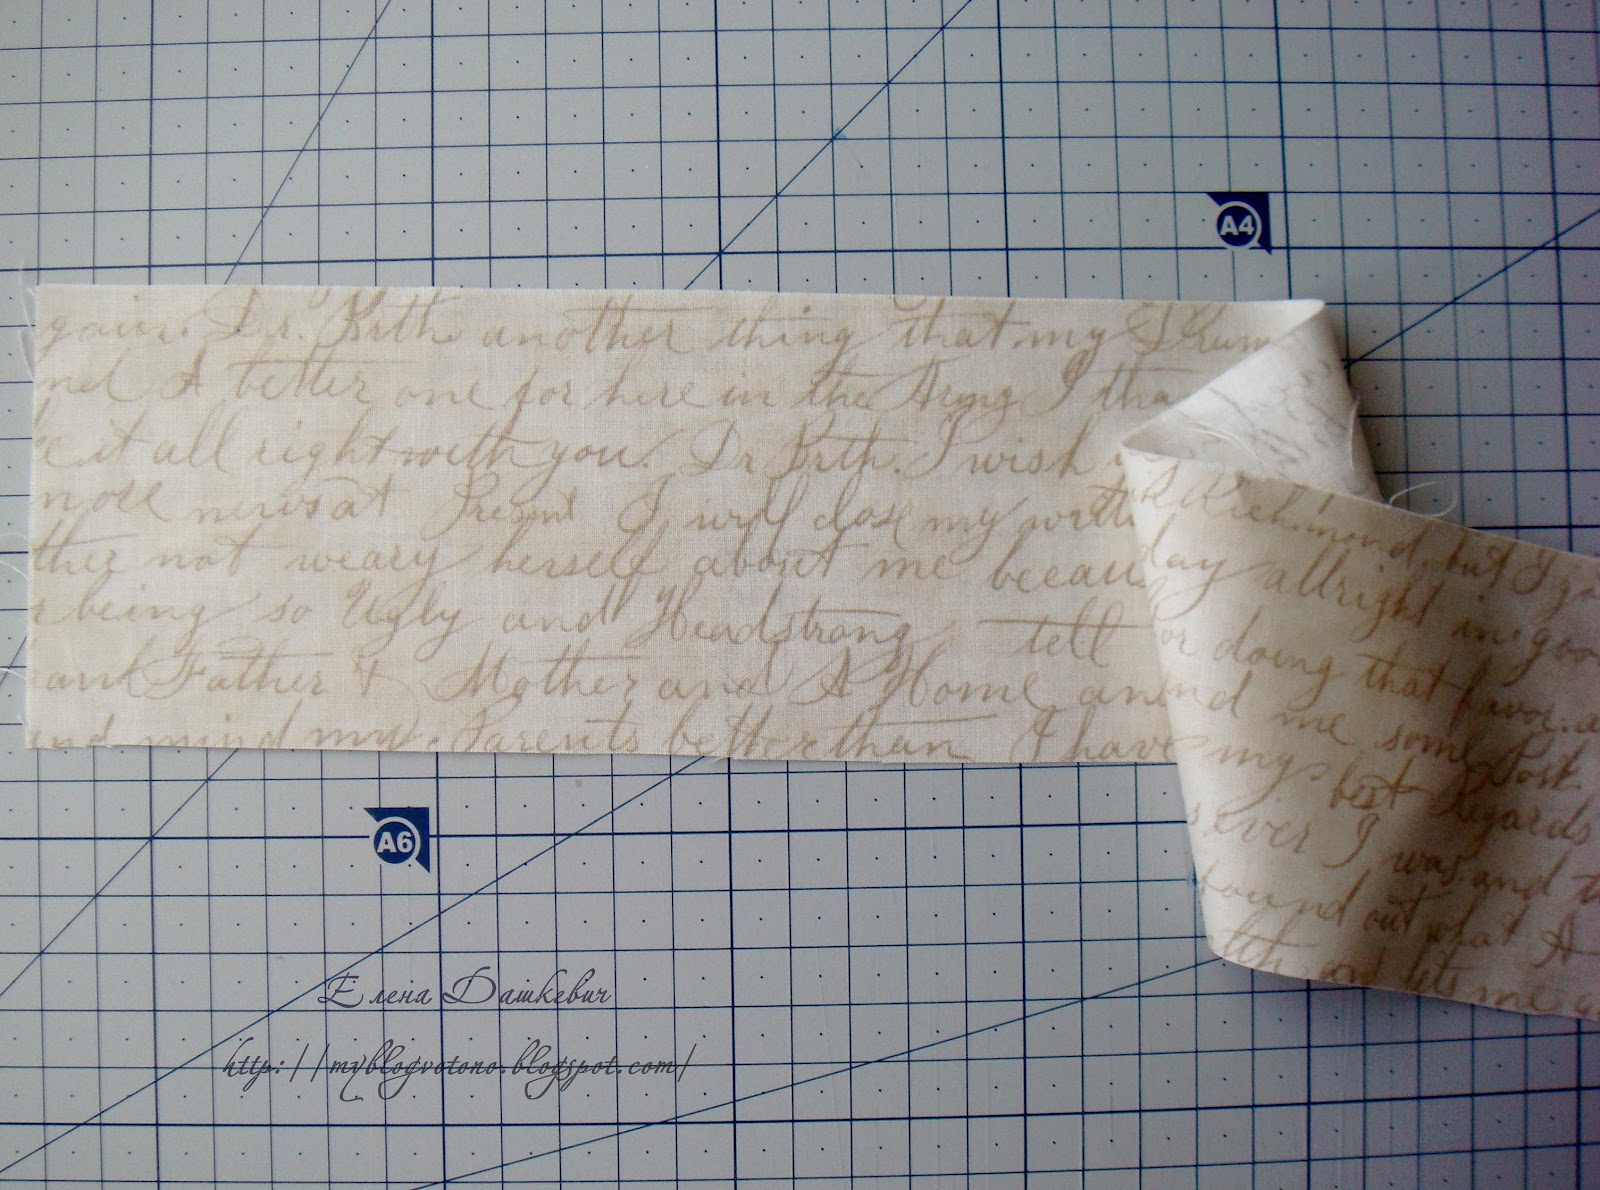 A4
gain. Dr. Brth another thing that my Drum
nd A better one for here in the Army I tha
it all right with you. Dr Brth. I wish
more news at Present I will close my
ther not weary herself about me becau
being so Ugly and Headstrong tell
Father & Mother and A Home and
and mind my Parents better than I have
Richmond, but I
day allright in goo
or doing that favor
nd me some Post
my best Regards
ever I was and
found out what A
and lets me
A6
Елена Дашкевич
http://myblogvotono.blogspot.com/